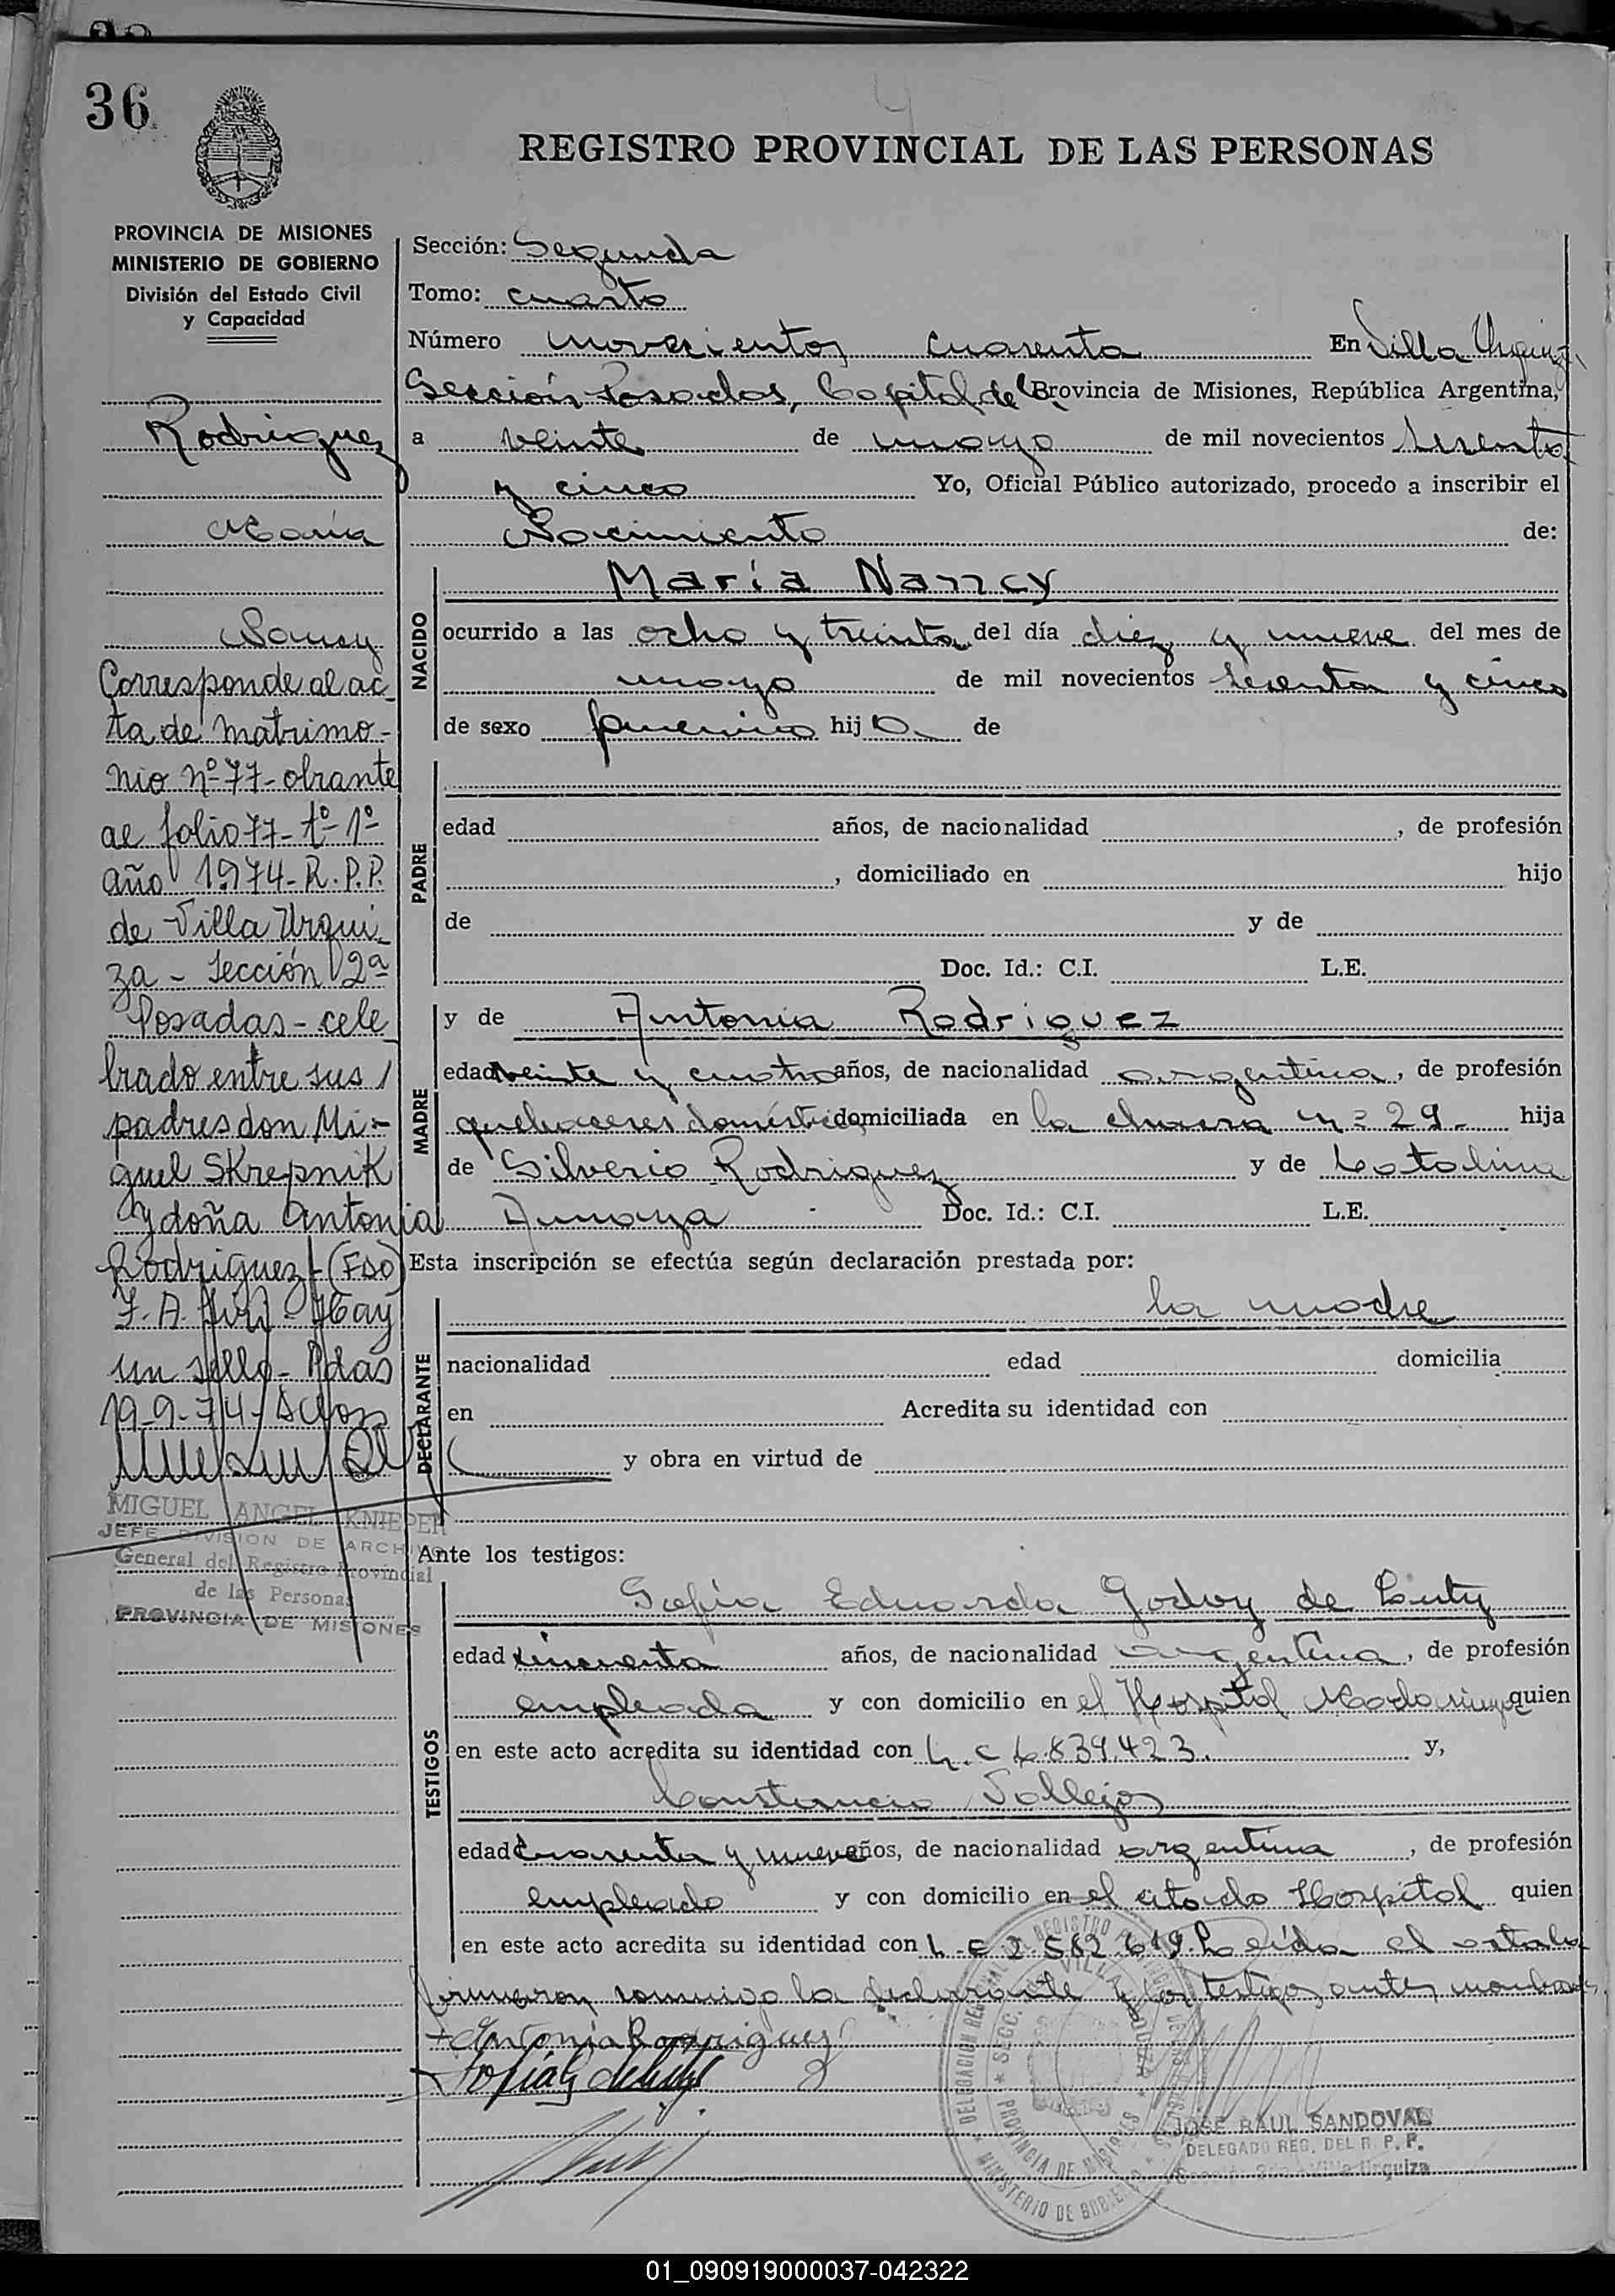 36
REGISTRO PROVINCIAL DE LAS PERSONAS
PROVINCIA DE MISIONES
MINISTERIO DE GOBIERNO
División del Estado Civil
y Capacidad
Rodriguez
María
Nancy
Corresponde al ac
ta de matrimo-
nio nº 77- obrante
al folio 77- tº- 1º
año 1974- R.P.P.
de Villa Urqui
za - Sección 2ª
Posadas - cele
brado entre sus
padres don Mi-
guel Skrepnik
y doña Antonia
Rodriguez - (Fdo)
Hay
un sello - Pdas
19-9-74-
MIGUEL ANGEL KNIEPER
JEFE DIVISION DE ARCHIVO
General del Registro Provincial
de las Personas
PROVINCIA DE MISIONES
Sección: Segunda
Tomo: cuarto
Número novecientos cuarenta En Villa Urquiza
Sección Posadas, Capital de la Provincia de Misiones, República Argentina,
a veinte de mayo de mil novecientos sesenta
y cinco Yo, Oficial Público autorizado, procedo a inscribir el
Nacimiento de:
NACIDO
María Nancy
ocurrido a las ocho y treinta del día diez y nueve del mes de
mayo de mil novecientos sesenta y cinco
de sexo femenino hija de
PADRE
edad años, de nacionalidad , de profesión
, domiciliado en hijo
de y de
Doc. Id.: C.I. L.E.
MADRE
y de Antonia Rodriguez
edad veinte y cuatro años, de nacionalidad argentina, de profesión
quehaceres domésticos domiciliada en la chacra nº 29- hija
de Silverio Rodriguez y de Catalina
Amaya Doc. Id.: C.I. L.E.
Esta inscripción se efectúa según declaración prestada por:
DECLARANTE
la madre
nacionalidad edad domicilia
en Acredita su identidad con
y obra en virtud de
Ante los testigos:
TESTIGOS
Sofia Eduarda Godoy de
edad cincuenta años, de nacionalidad argentina, de profesión
empleada y con domicilio en el Hospital Madariaga quien
en este acto acredita su identidad con L.C 6.839.423. y,
Constancio Vallejos
edad cuarenta y nueve años, de nacionalidad argentina, de profesión
empleado y con domicilio en el citado Hospital quien
en este acto acredita su identidad con L.C 2.582.619. Leída el acta la
firmaron conmigo la declarante y los testigos antes
Antonia Rodriguez
Sofía G de
JOSE RAUL SANDOVAL
DELEGADO REG. DEL R. P. P.
Villa Urquiza
01_090919000037-042322